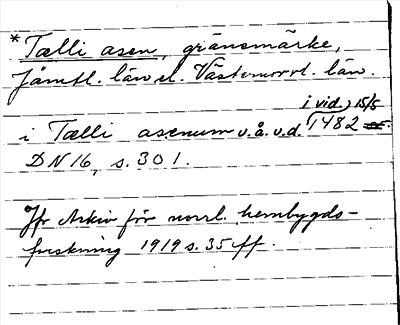 *Tælli asen, gränsmärke,
Jämtl. län el. Västernorrl. län.
i vid.) 15/5
i Tælli asenum v.å.v.d. 1482
DN 16, s. 301.
Jfr Arkiv för norrl. hembygds-
forskning 1919 s. 35 ff.